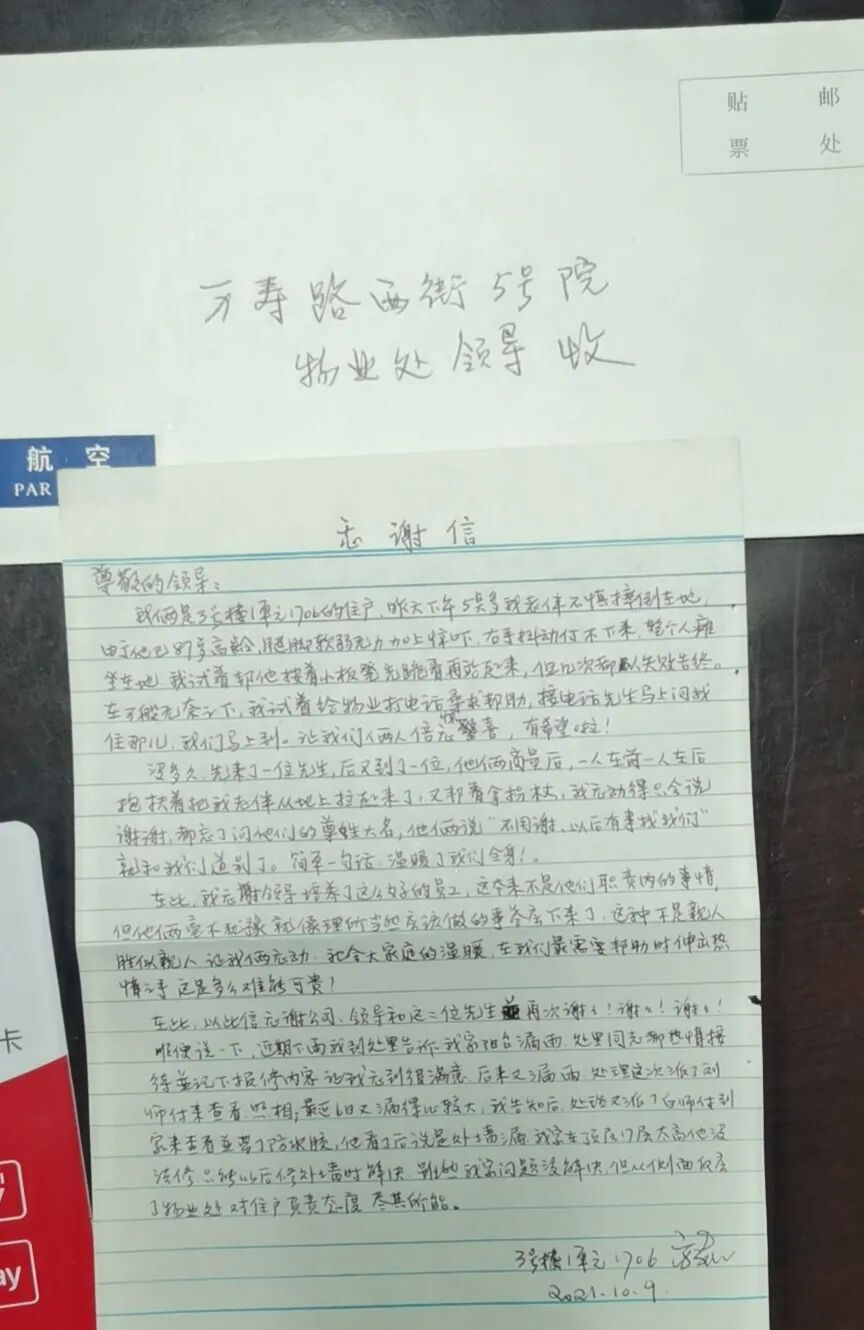 贴 邮
票 处
万寿路西街5号院
物业处领导收
航 空
PAR
志谢信
尊敬的领导：
我俩是3号楼1单元1706的住户，昨天下午5点多我老伴不慎摔倒在地，
由于他已87岁高龄，腿脚软弱无力加上惊吓，右手抖动停不下来，整个人瘫
坐在地，我试着帮他按着小板凳先跪着再站起来，但几次都以失败告终。
在万般无奈之下，我试着给物业打电话寻求帮助，接电话先生马上问我
住那儿，我们马上到。让我们俩人倍感惊喜，有希望啦！
没多久，先来了一位先生，后又到了一位，他俩商量后，一人在前一人在后
抱扶着把我老伴从地上拉起来了，又帮着拿拐杖，我感动得只会说
谢谢，都忘了问他们的尊姓大名，他俩说“不用谢，以后有事找我们”
就和我们道别了。简单一句话，温暖了我们全身！。
在此，我感谢领导培养了这么好的员工，这本来不是他们职责内的事情，
但他俩毫不犹豫就像理所当然应该做的事答应下来了，这种不是亲人
胜似亲人 让我俩感动。社会大家庭的温暖，在我们最需要帮助时伸出热
情之手 这是多么难能可贵！
在此，以此信感谢公司、领导和这二位先生 再次谢谢！谢谢！谢谢！
顺便说一下，近期下雨我到处里告诉 我家阳台漏雨，处里同志都热情接
待并记下报修内容 让我感到很满意，后来又漏雨，处理这次派了刘
师付来查看、照相；最近1日又漏得比较大，我告知后，处理又派了白师付到
家来查看并带了防水胶，他看了后说是外墙漏，我家在顶层17层太高他没
法修，只能以后修外墙时解决。虽然我家问题没解决，但从侧面反应
了物业处对住户负责态度 尽其所能。
3号楼1单元1706
2021.10.9
卡
ay